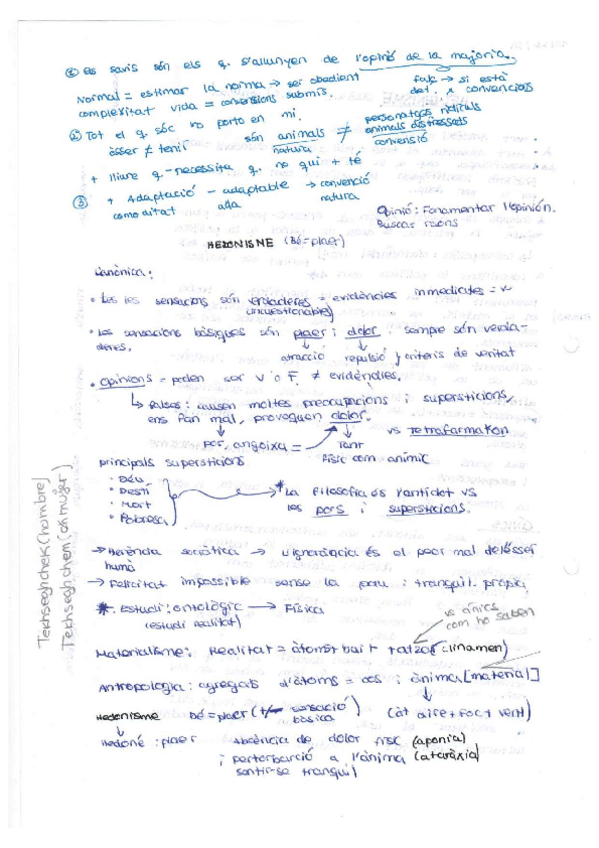 ① Els savis són els q. s'allunyen de l'opinió de la majoria.
Normal = estimar la norma → ser obedient
fals → si està
complexitat vida = conversions submis.
det. x convencions
② Tot el q. sóc ho porto en mi.
ésser ≠ tenir
són animals ≠ personatges ridículs
animals disfressats
natura
convensió
+ lliure q. necessita q. no qui + té
③ + Adaptació - adaptable → convenció
comoditat
natura
Opinió: Fonamentar l'opinión.
Buscar raons
HEDONISME (Bé = plaer)
Canònica:
• Les sensacions són verdaderes = evidències inmediates = v
(incuestionables)
• Les sensacions bàsiques són plaer i dolor. sempre són verda-
deres.
atracció repulsió y criteris de veritat
• Opinions = poden ser V o F. ≠ evidències.
↳ Falses: causen moltes preocupacions i supersticions,
ens fan mal, provoquen dolor.
vs Tetrafarmakon
por, angoixa =
Tant
físic com anímic
principals supersticions
• Déu
• Destí
• Mort
• Pobresa
* La filosofia és l'antídot vs
les pors i supersticions.
→ Herència socràtica → L'ignorància és el pear mal de l'ésser
humà
→ Felicitat impossible sense la pau i tranquil. pròpia,
*. Estudi: ontològic → Física
(estudi realitat)
vs cínics
com ho saben
Materialisme: Realitat = àtoms + buit + (clinamen)
Antropologia: agregats d'àtoms = cos i ànima [material]
Hedonisme Bé = plaer (+/- sensació bàsica)
(àt aire + foc + vent)
Hedoné: plaer
Absència de dolor físic (aponia)
i pertorbarció a l'ànima (ataràxia)
sentir-se tranquil